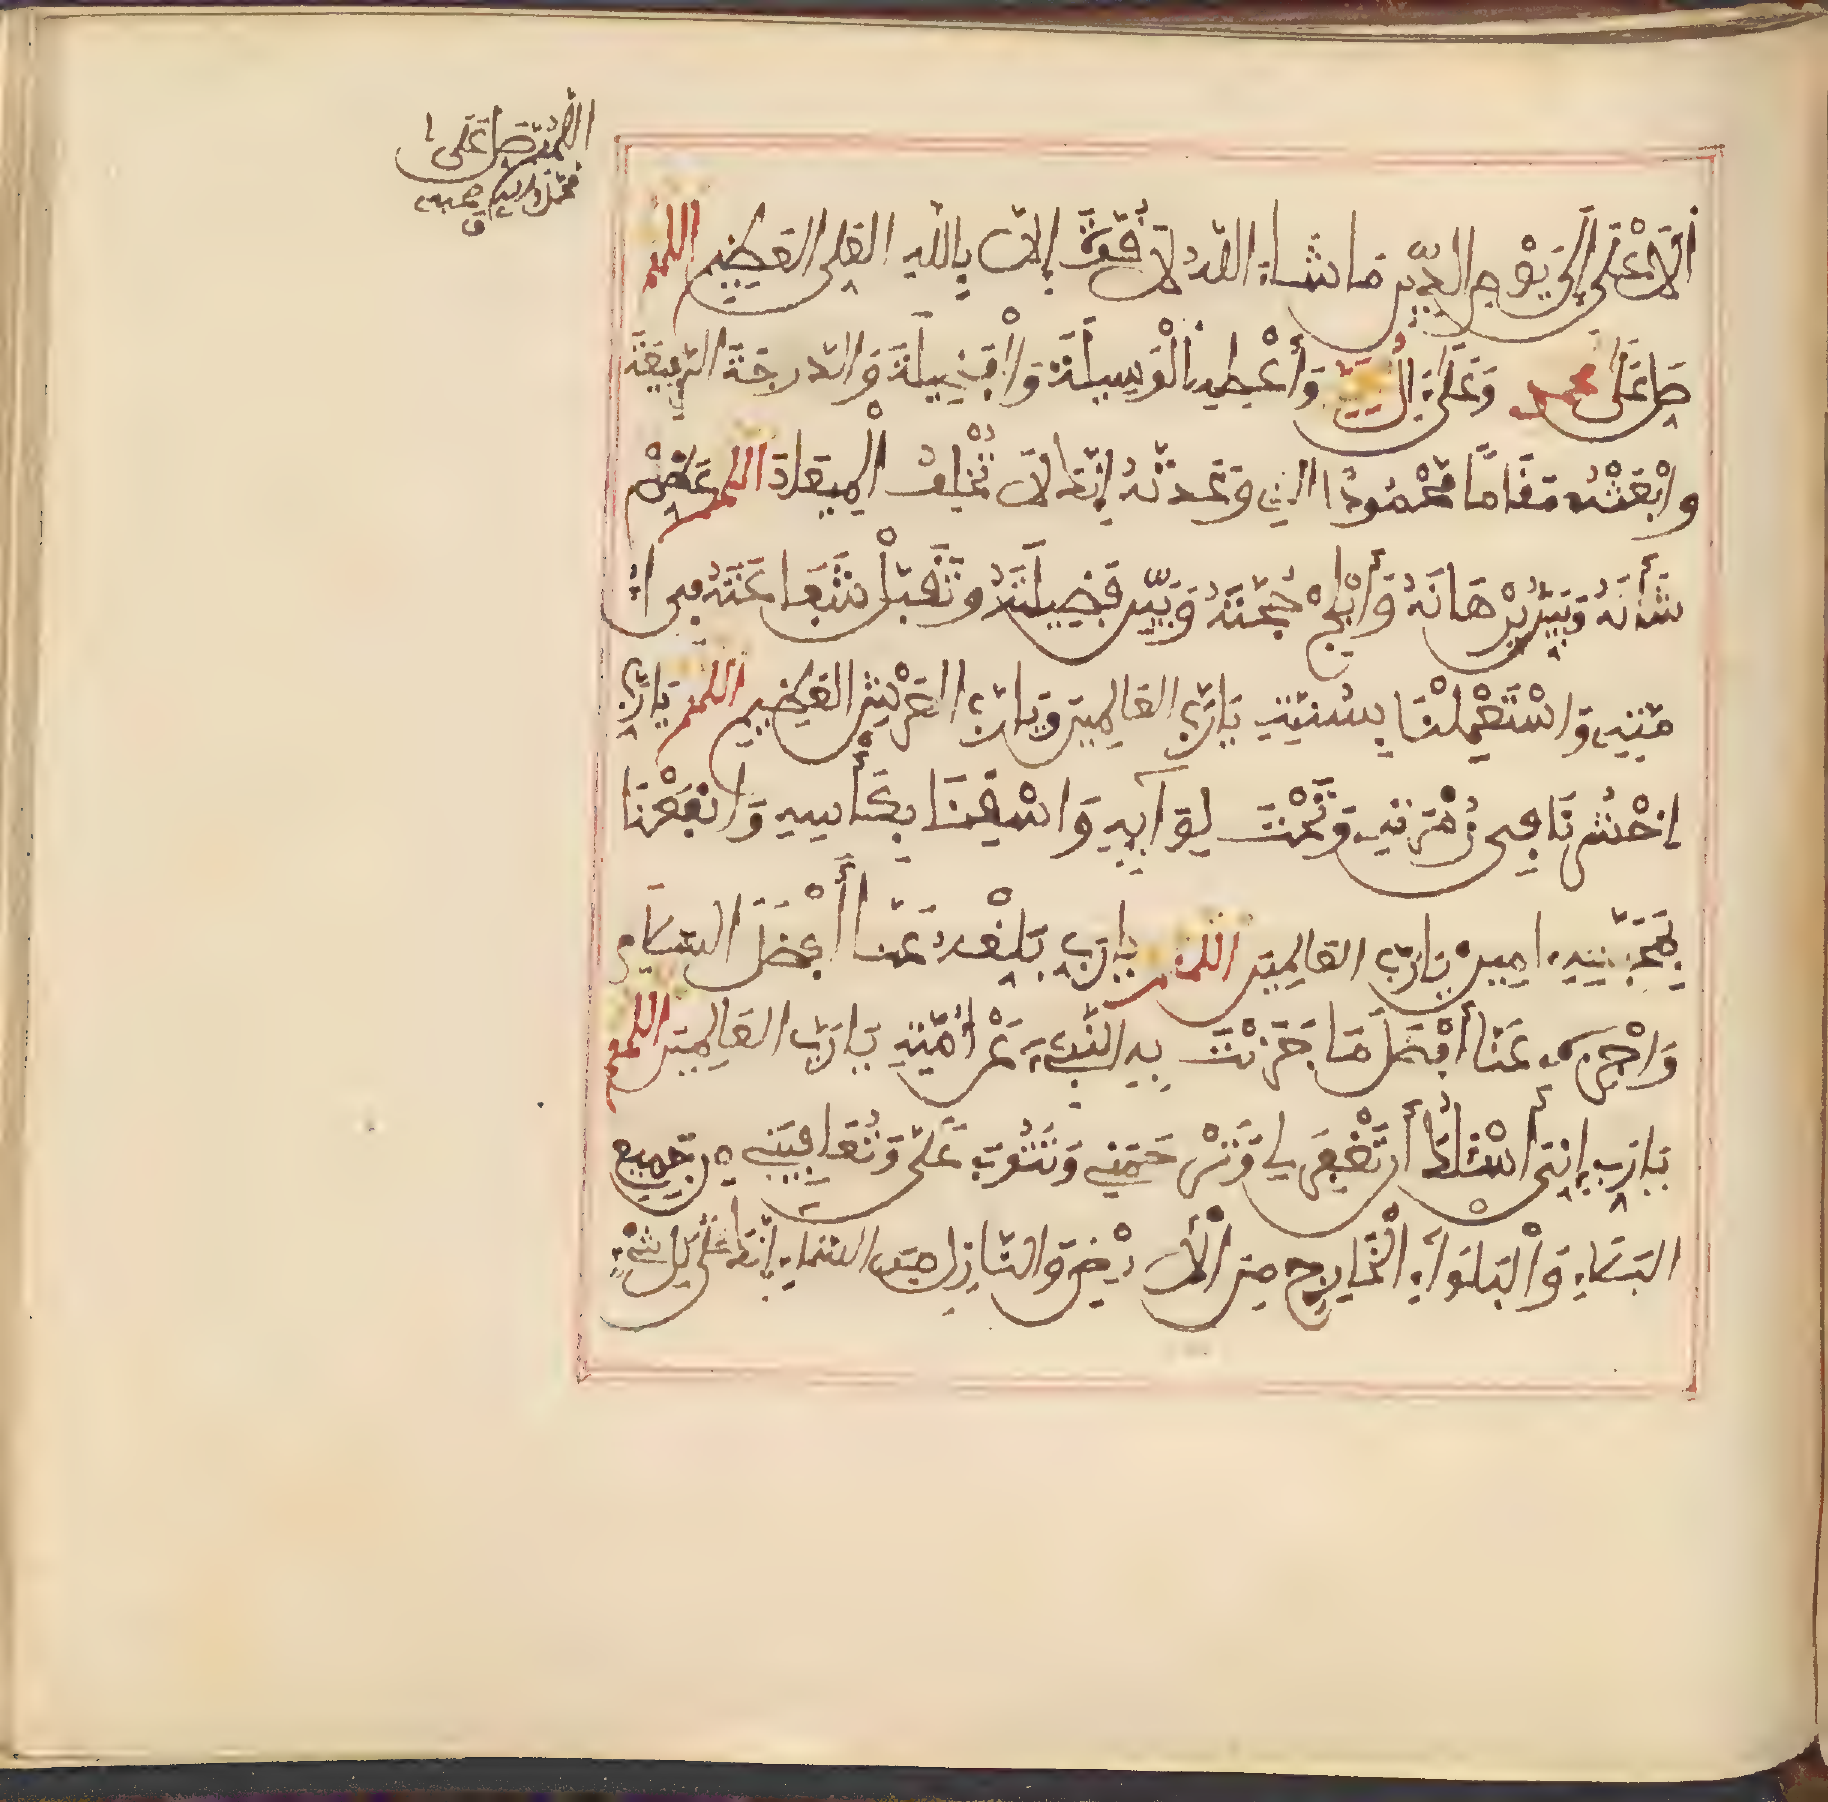 اللهم صل على
محمد واله وصحبه
ق
الأعلى إلى يوم الدين ما شاء الله لا قوة إلا بالله العلي العظيم اللهم
صل على محمد وعلى ءال محمد وأعطه الوسيلة والفضيلة والدرجة الرفيعة
وابعثه مقاما محمودا الذي وعدته إنك لا تخلف الميعاد اللهم عظم
شأنه وبين برهانه وأبلج حجته وبين فضيلته وتقبل شفاعته في ا
مته واستعملنا بسنته يا رب العالمين ويا رب العرش العظيم اللهم يا رب
احشرنا في زمرته وتحت لوآيه واسقنا بكأسه وانفعنا
بمحبته ءامين يا رب العالمين اللهم يا رب بلغه عنا أفضل السلام
واجزه عنا أفضل ما جزيت به النبيء عن أمته يا رب العالمين اللهم
يا رب إني أسئلك أن تغفر لي وترحمني وتتوب علي وتعافيني من جميع
البلاء والبلوآء الخارج من الأرض والنازل من السماء إنك على كل شيء